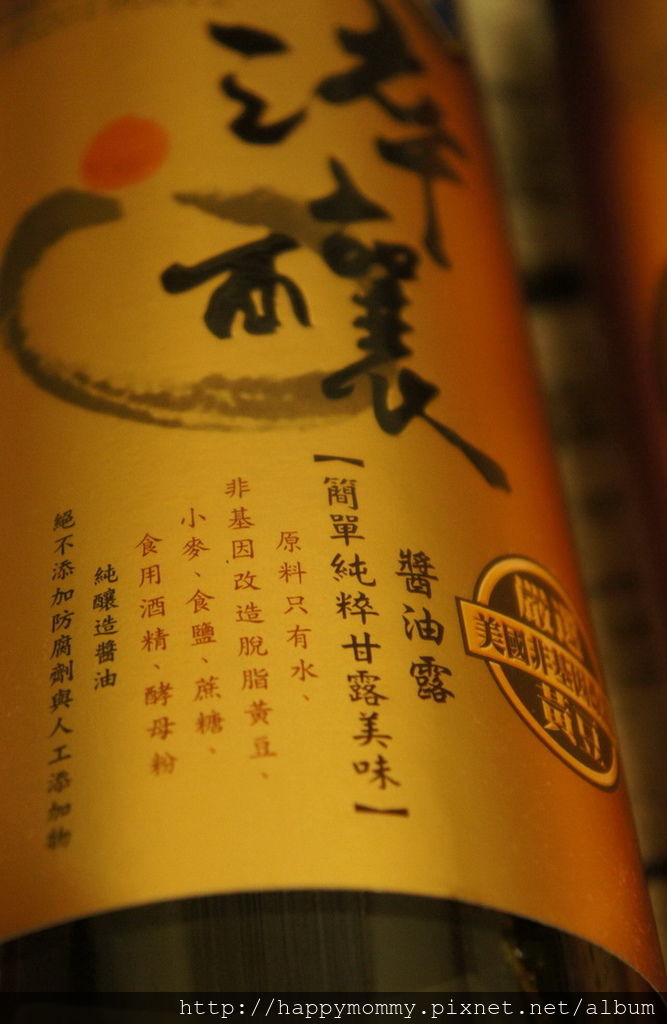 淬釀
醬油露
【簡單純粹甘露美味】
原料只有水、
非基因改造脫脂黃豆、
小麥、食鹽、蔗糖、
食用酒精、酵母粉
純釀造醬油
絕不添加防腐劑與人工添加物
嚴選
美國非基因改
黃豆
http://happymommy.pixnet.net/album